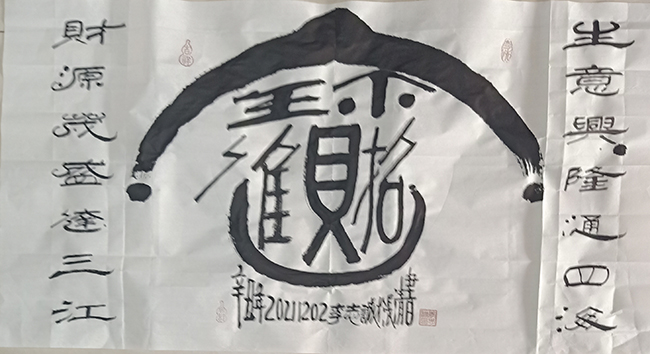 生意興隆通四海
招財進寶
財源茂盛達三江
20211202李志誠